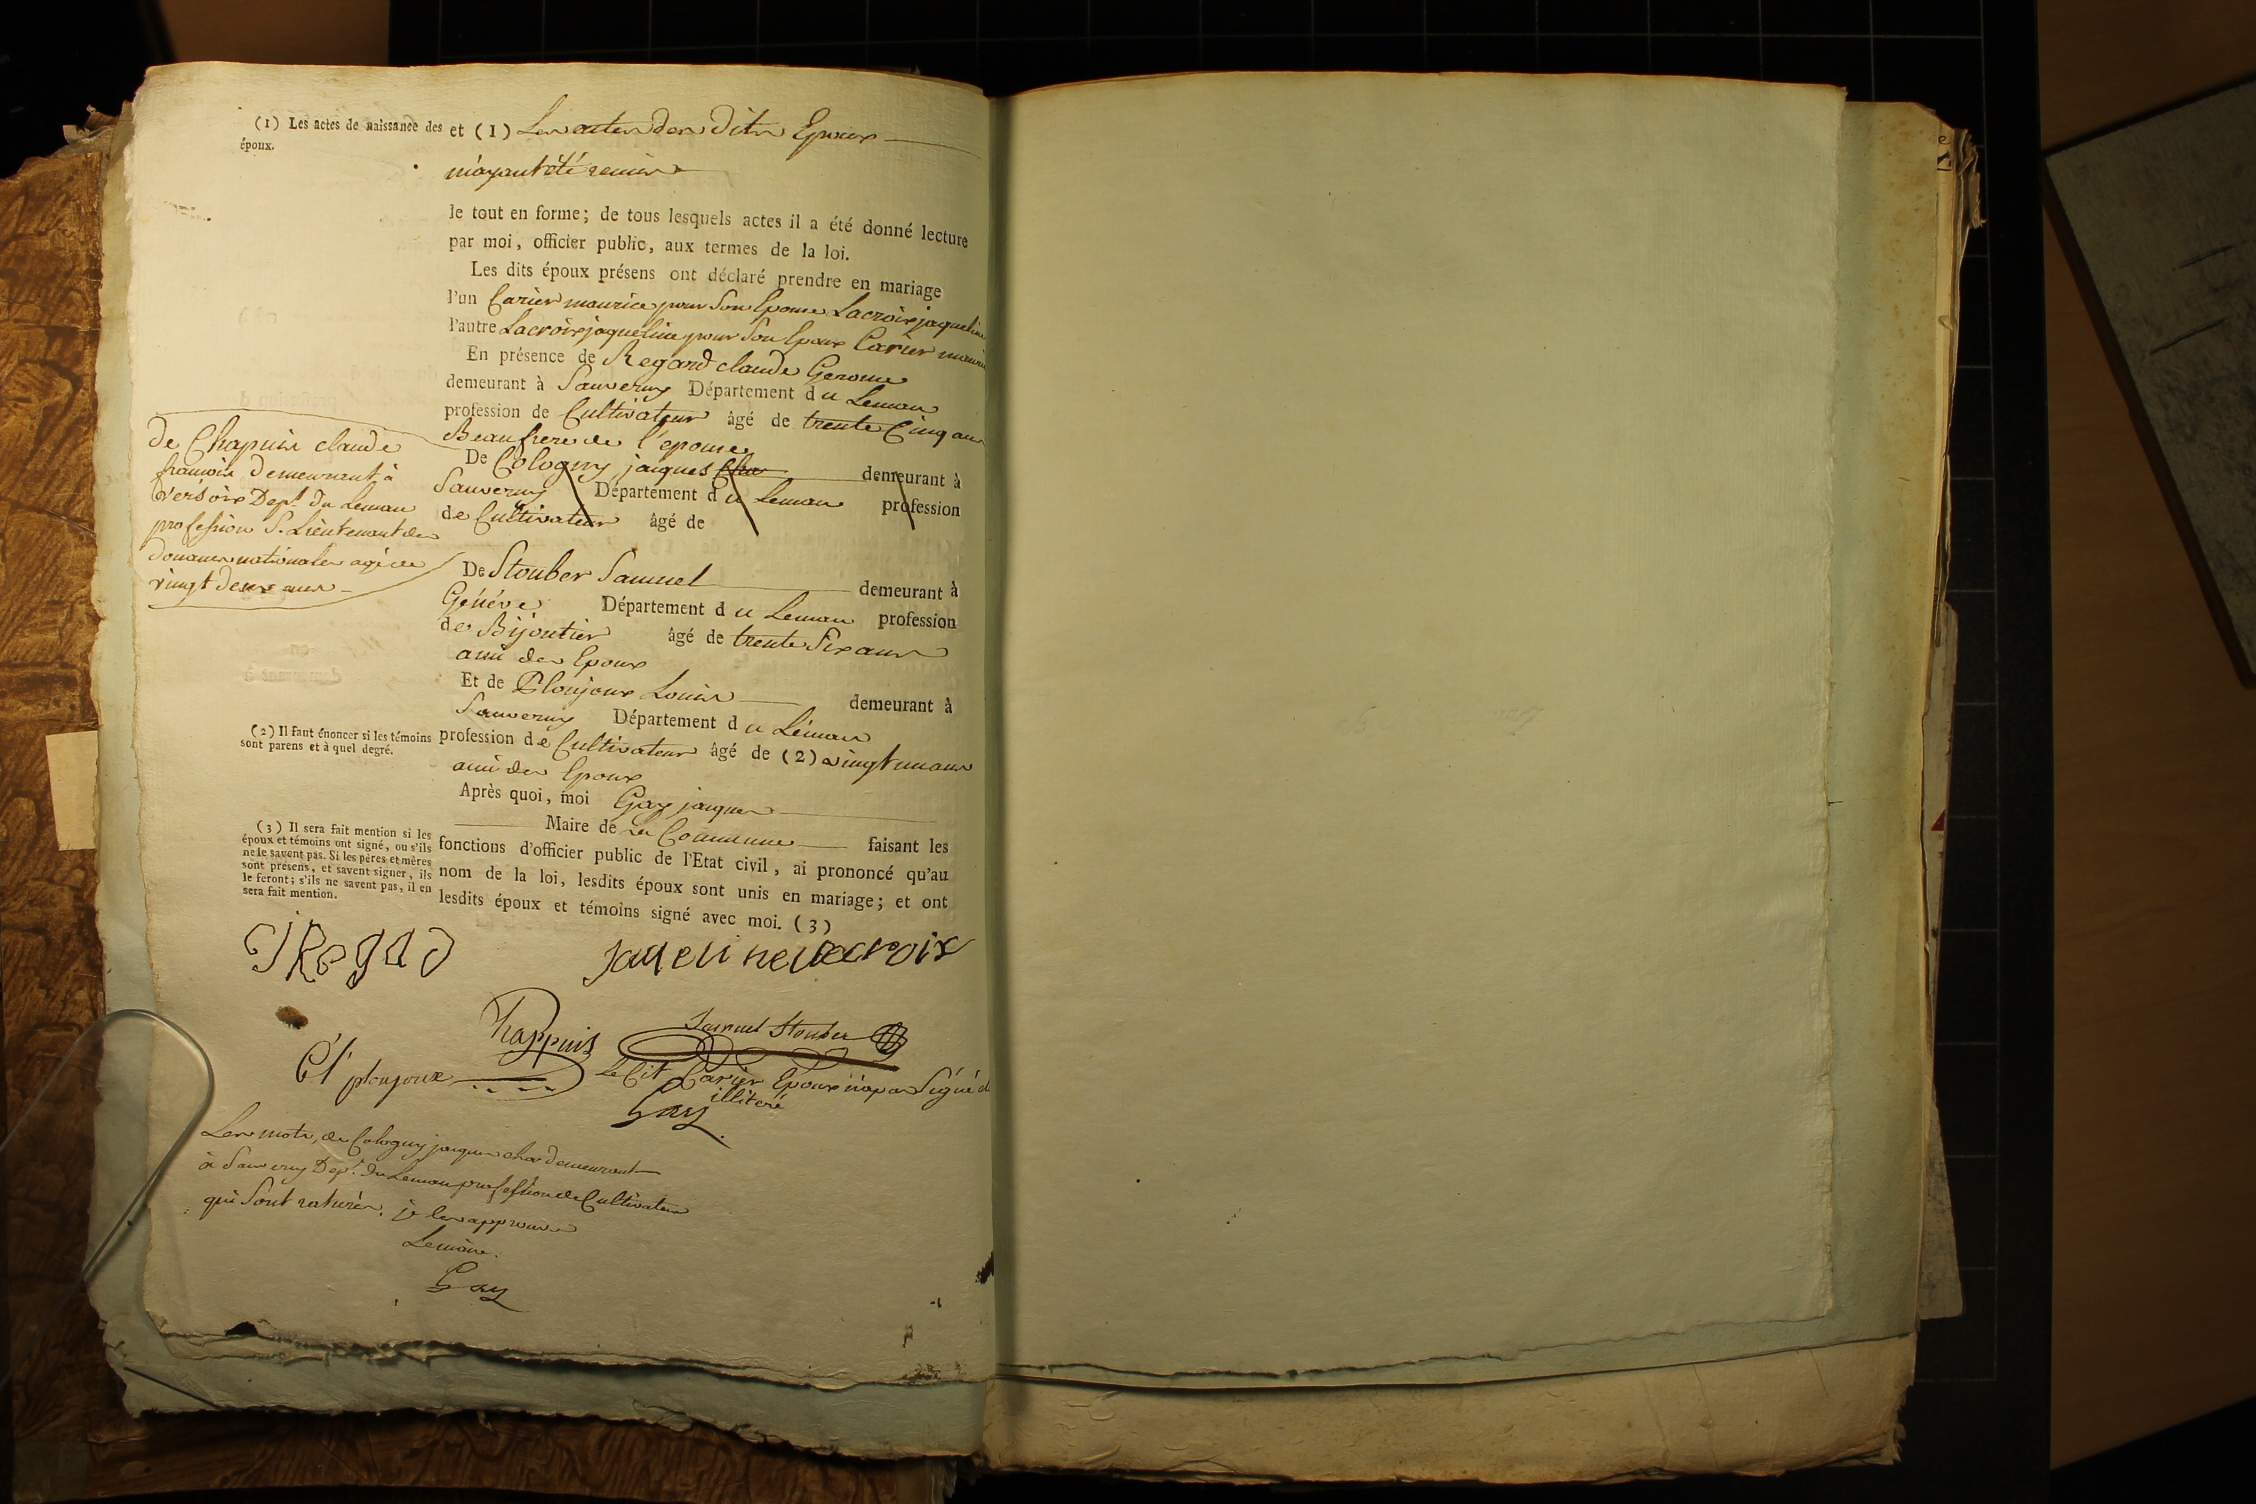 (1) Les actes de naissance des
époux.
et (1) Les actes des dits Epoux
m'ayant été remis
le tout en forme; de tous lesquels actes il a été donné lecture
par moi, officier public, aux termes de la loi.
Les dits époux présens ont déclaré prendre en mariage
l'un Carier maurice pour son Epouse Lacroix jaqueline
l'autre Lacroix jaqueline pour son Epoux Carier maurice
En présence de Regard claude Gerome
demeurant à Sauverny Département du Leman
profession de Cultivateur âgé de trente Cinq ans
Beaufrere de l'epouse
de Chapuis claude
françois demeurant à
Versoix Dept. du Leman
profession S. Lieutenant des
douanes nationales agé de
vingt deux ans
De Cologny jaques cha demeurant à
Sauverny Département du Leman profession
de Cultivateur âgé de
De Stouber Samuel demeurant à
Genéve Département du Leman profession
de Bijoutier âgé de trente Six ans
ami des Epoux
Et de Ploujoux Louis demeurant à
Sauverny Département du Léman
(2) Il faut énoncer si les témoins
sont parens et à quel degré.
profession de Cultivateur âgé de (2) vingt un ans
ami des Epoux
Après quoi, moi Gay jaques
Maire de la Commune faisant les
(3) Il sera fait mention si les
époux et témoins ont signé, ou s'ils
ne le savent pas. Si les pères et mères
sont présens, et savent signer, ils
le feront; s'ils ne savent pas, il en
sera fait mention.
fonctions d'officier public de l'Etat civil, ai prononcé qu'au
nom de la loi, lesdits époux sont unis en mariage; et ont
lesdits époux et témoins signé avec moi. (3)
Jaqueline lacroix
Chappuis
Samuel Stouber
ploujoux
Le Cit Carier Epoux n'a pas Signé
illiteré
Gay
Les mots, de Cologny jaques cha demeurant
à Sauverny Dept. du Leman profession de Cultivateur
qui Sont raturés. je les approuve
Le maire.
Gay